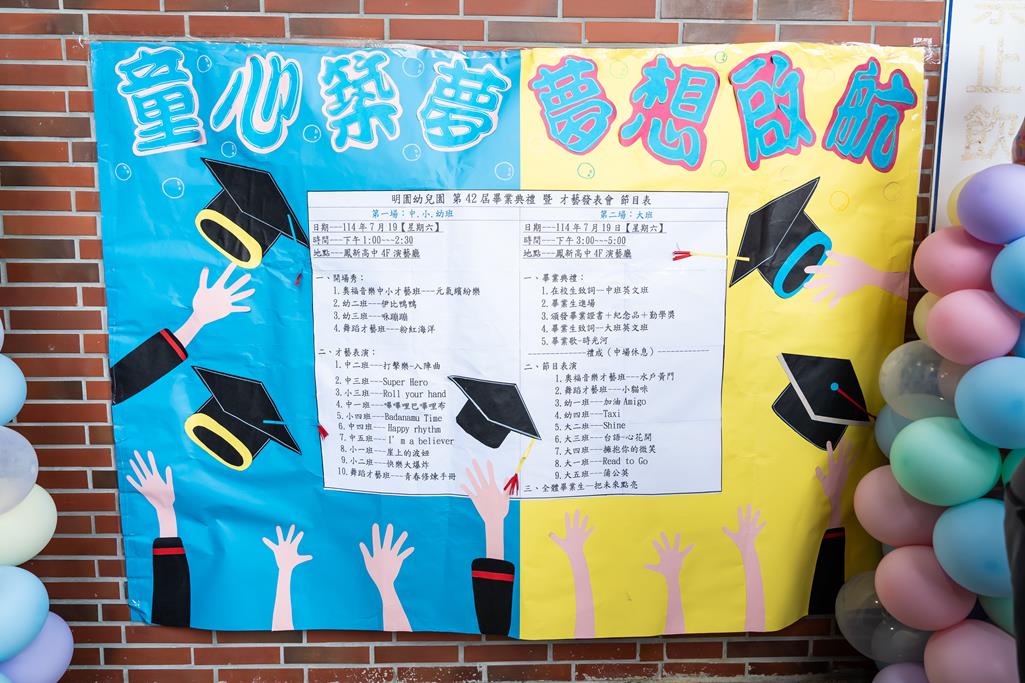 童心築夢 夢想啟航
明園幼兒園 第42屆畢業典禮 暨 才藝發表會 節目表
第一場：中.小.幼班
日期---114年7月19【星期六】
時間---下午1:00~~~2:30
地點---鳳新高中4F演藝廳
一、開場秀：
1.奧福音樂中小才藝班---元氣繽紛樂
2.幼二班---伊比鴨鴨
3.幼三班---咻蹦蹦
4.舞蹈才藝班---粉紅海洋
二、才藝表演：
1.中二班---打擊樂-入陣曲
2.中三班---Super Hero
3.小三班---Roll your hand
4.中一班---嗶嗶哩巴嗶哩布
5.小四班---Badanamu Time
6.中四班---Happy rhythm
7.中五班---I'm a believer
8.小一班---崖上的波妞
9.小二班---快樂大爆炸
10.舞蹈才藝班---青春修煉手冊
第二場：大班
日期---114年7月19日【星期六】
時間---下午3:00~~~5:00
地點---鳳新高中4F演藝廳
一、畢業典禮：
1.在校生致詞—中班英文班
2.畢業生進場
3.頒發畢業證書＋紀念品＋勤學獎
4.畢業生致詞—大班英文班
5.畢業歌-時光河
---------------禮成（中場休息）---------------
二、節目表演
1.奧福音樂才藝班---水戶黃門
2.舞蹈才藝班---小貓咪
3.幼一班---加油Amigo
4.幼四班---Taxi
5.大二班---Shine
6.大三班---台語-心花開
7.大四班---擁抱你的微笑
8.大一班---Read to Go
9.大五班---蒲公英
三、全體畢業生—把未來點亮